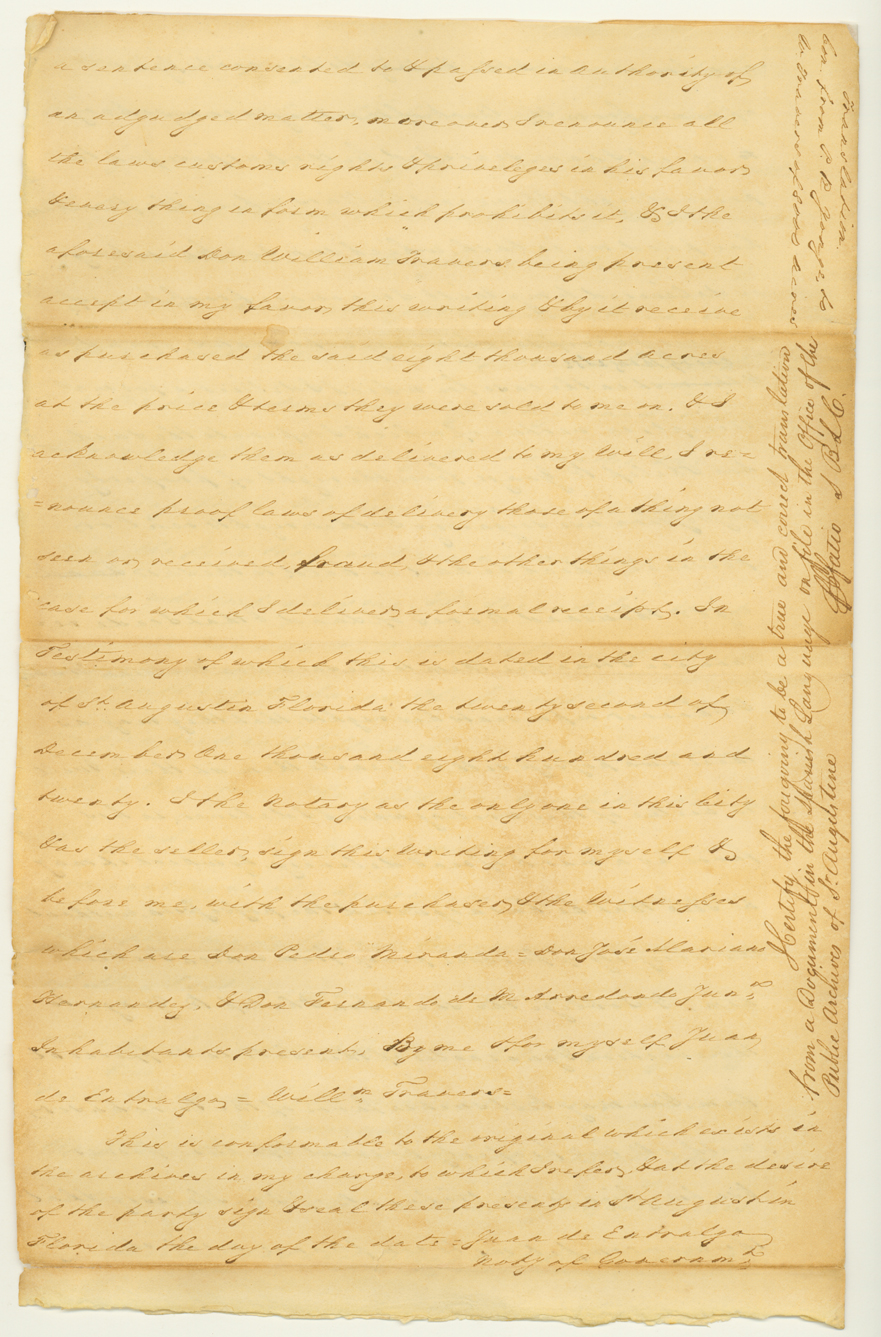 a sentence consented to & passed in authority of
an adjudged matter, moreover I renounce all
the laws customs rights & privileges in his favor
& every thing in form which prohibits it, & I the
aforesaid Don William Travers being present
accept in my favor this writing & by it receive
as purchased the said eight thousand acres
at the price & terms they were sold to me on. & I
acknowledge them as delivered to my Will, I re=
=nounce proof laws of delivery those of a thing not
seen or received, fraud, & the other things in the
case for which I deliver a formal receipt. In
Testimony of which this is dated in the city
of St. Augustin Florida the twenty second of
December One thousand eight hundred and
twenty. I the Notary as the only one in this City
& as the seller, sign this writing for myself &
before me, with the purchaser & the Witnesses
which are Don Pedro Miranda = Don José Mariano
Hernandez, & Don Fernando de M Arredondo Junr.
Inhabitants present, By me & for myself Juan
de Entralgo = Willm Travers =
This is conformable to the original which exists in
the archives in my charge, to which I refer, & at the desire
of the party sign & seal these presents in St Augustin
Florida the day of the date = Juan de Entralgo
Noty of Governmt
I Certify the foregoing to be a true and correct translation
from a Document in the Spanish Language on file in the Office of the
Public Archives of St. Augustine
Fatio S B L C.
Translation
from
to Travers 8000 acres